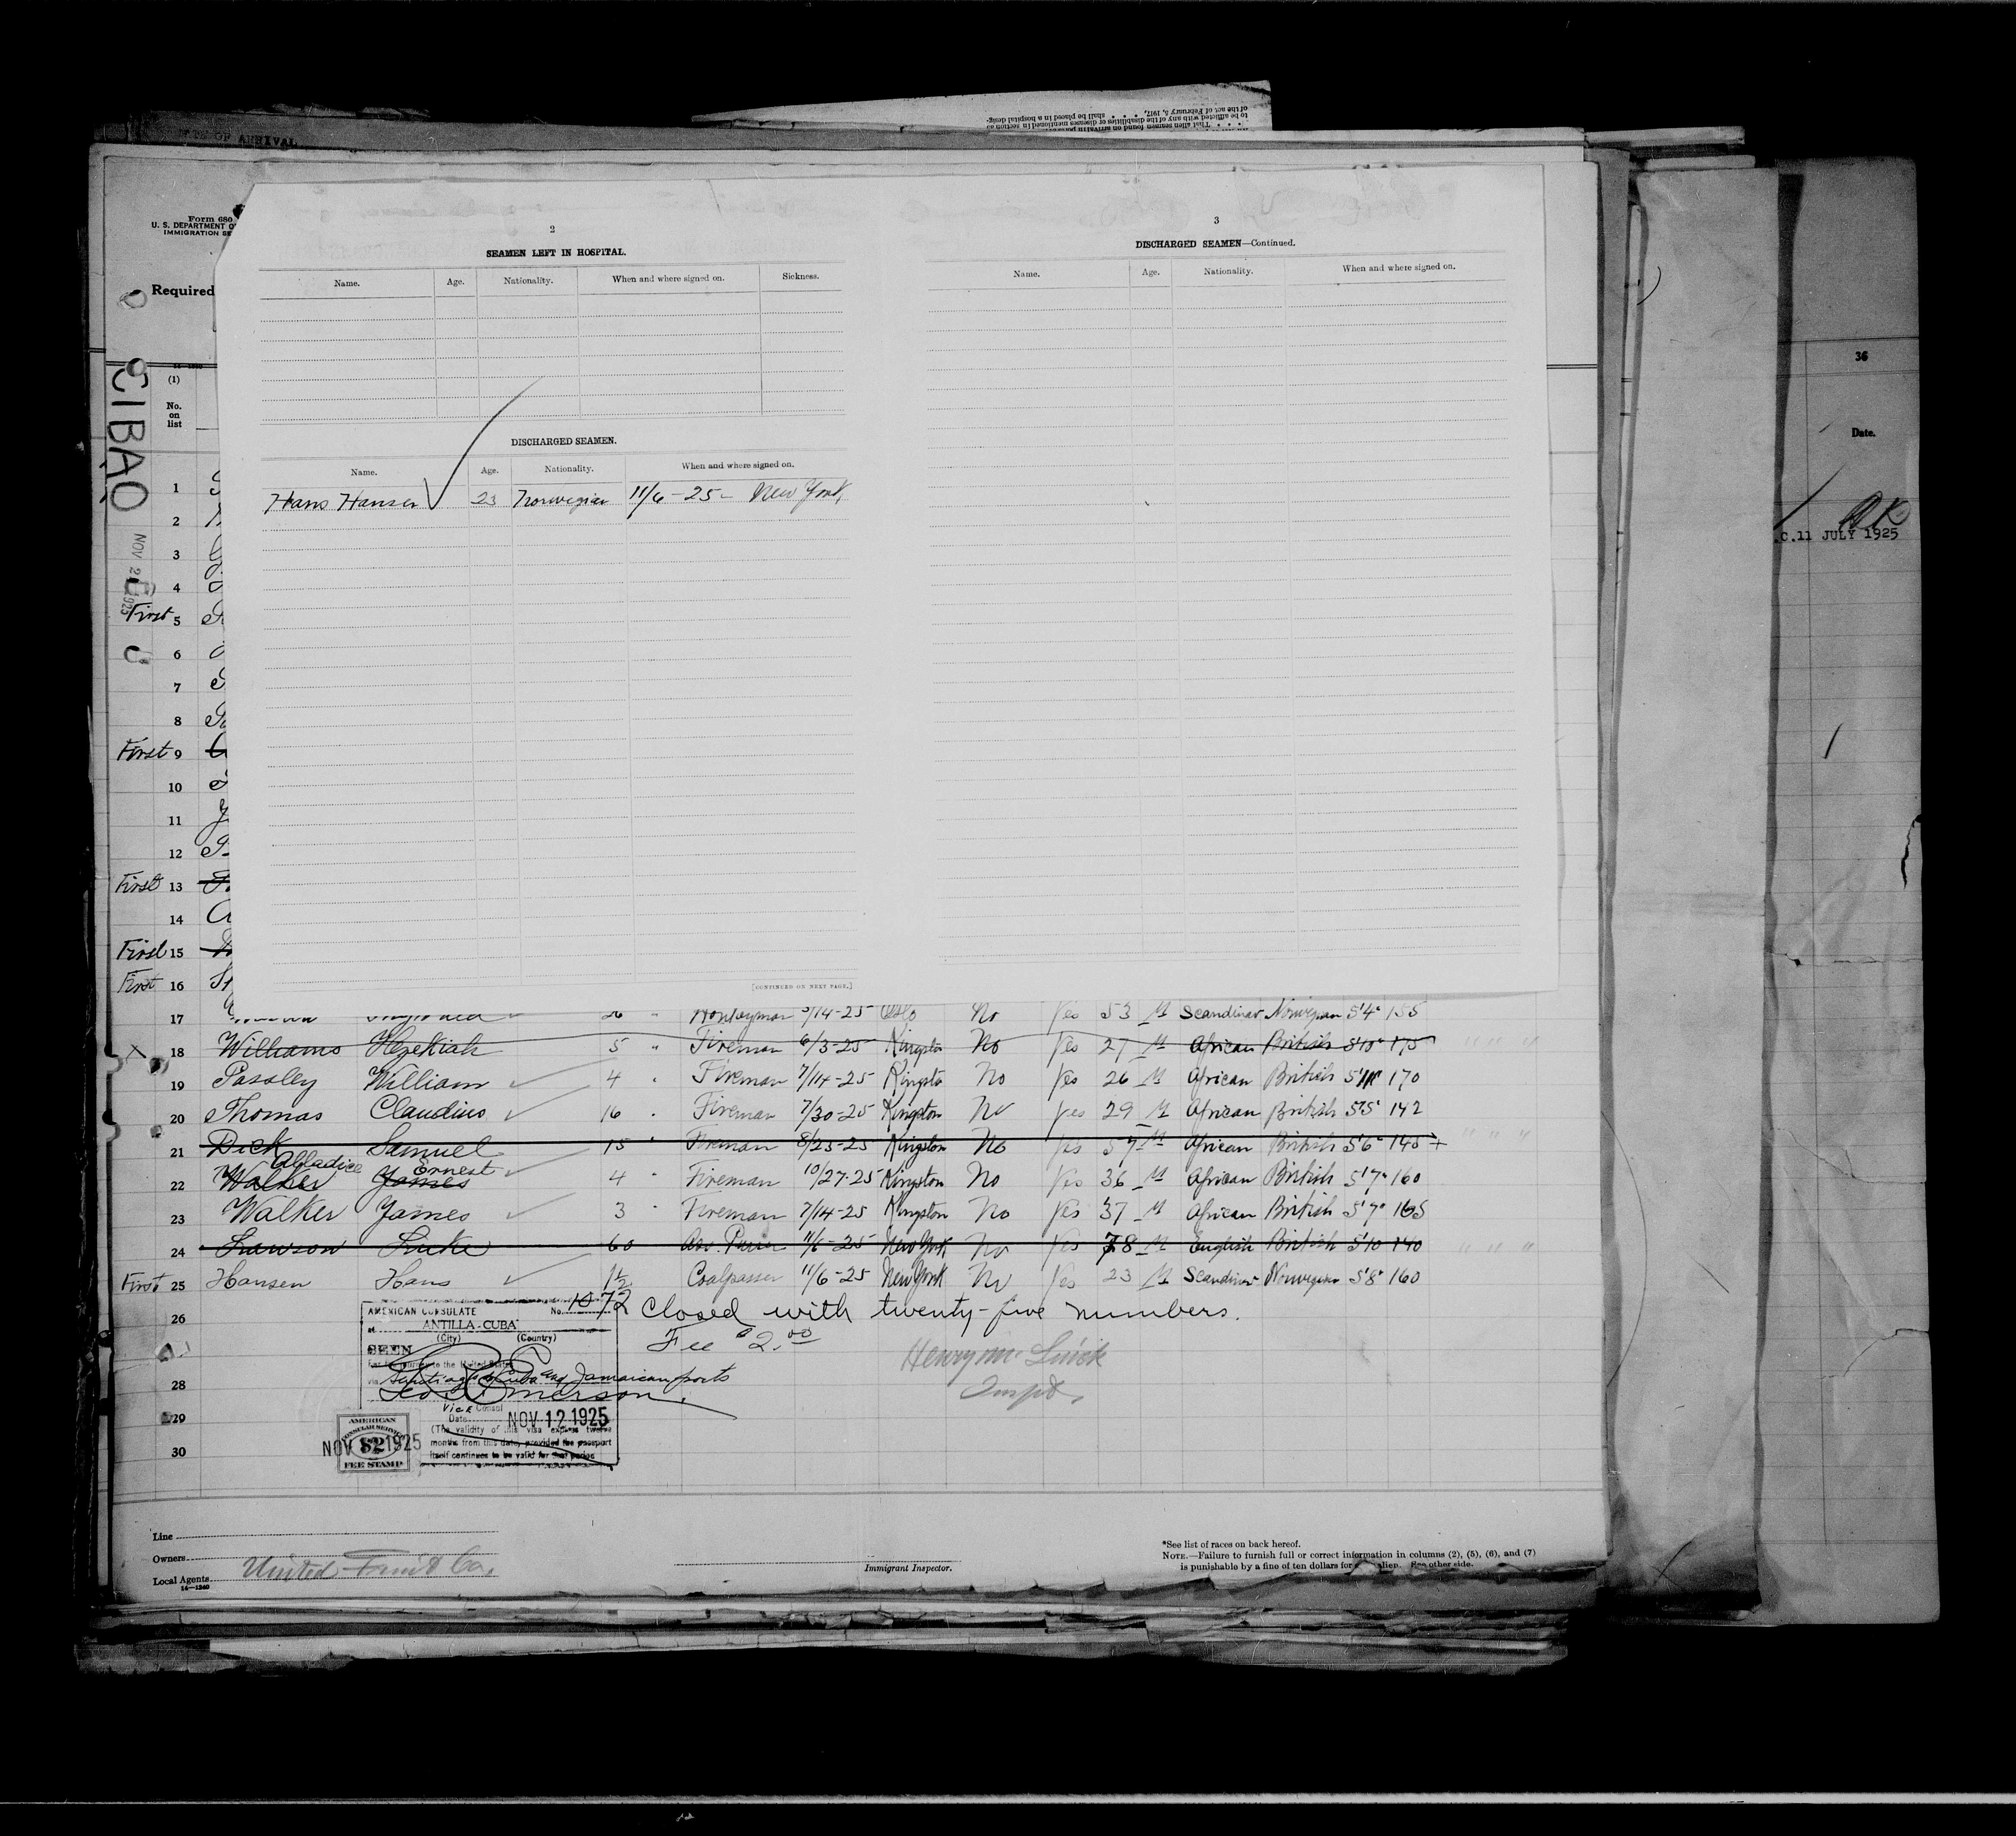 TE OF ARRIVAL
of the act of February 5, 1917, . . . . shall be placed in a hospital desig-
to be afflicted with any of the disabilities or diseases mentioned in section
. . . . That alien seamen found on arrival in
Form 680
U. S. DEPARTMENT O
IMMIGRATION SE
Required
2
SEAMEN LEFT IN HOSPITAL.
Name. Age. Nationality. When and where signed on. Sickness.
DISCHARGED SEAMEN.
Name. Age. Nationality. When and where signed on.
Hans Hansen 23 Norwegian 11/6-25- New York,
[CONTINUED ON NEXT PAGE.]
3
DISCHARGED SEAMEN—Continued.
Name. Age. Nationality. When and where signed on.
36
Date.
OK
.C.11 JULY 1925
CIBAO
NOV 2 1925
(1)
No.
on
list
1
2
3
4
First 5
6
7
8
First 9
10
11
12
First 13
14
First 15
First 16
17 3/14-25 Oslo No Yes 53 M Scandinav Norwegian 5'4" 155
18 Williams Hezekiah 5 " Fireman 6/3-25 Kingston No Yes 27 M African British 5'10" 175 " " "
19 Passley William 4 " Fireman 7/14-25 Kingston No Yes 26 M African British 170
20 Thomas Claudius 16 " Fireman 7/30-25 Kingston No Yes 29 M African British 5'5" 142
21 Dick Samuel 15 " Fireman 8/25-25 Kingston No Yes 57 M African British 5'6" 145 + " " "
Alladice Ernest
22 Walker James 4 " Fireman 10/27-25 Kingston No Yes 36 M African British 5'7" 160
23 Walker James 3 " Fireman 7/14-25 Kingston No Yes 37 M African British 5'7" 165
24 Lawson Luke 60 11/6-25 New York No Yes 78 M English British 5'10 140 " " "
First 25 Hansen Hans 1 1/2 Coalpasser 11/6-25 New York No Yes 23 M Scandinav Norwegian 5'8" 160
26 Closed with twenty-five numbers.
Fee $2.00
AMERICAN CONSULATE No. 1072
at ANTILLA-CUBA
(City) (Country)
SEEN
For the journey to the United States
via Santiago de Cuba and Jamaican ports
Geo. Emerson.
Vice Consul
Date NOV. 12 1925
(The validity of this visa expires twelve
months from this date, provided the passport
itself continues to be valid for that period
AMERICAN
CONSULAR SERVICE
NOV 12 1925
$2
FEE STAMP
Henry
Inspt.
28
29
30
Line
Owners
Local Agents United Fruit Co.
14—1240
Immigrant Inspector.
*See list of races on back hereof.
NOTE.—Failure to furnish full or correct information in columns (2), (5), (6), and (7)
is punishable by a fine of ten dollars for alien. See other side.